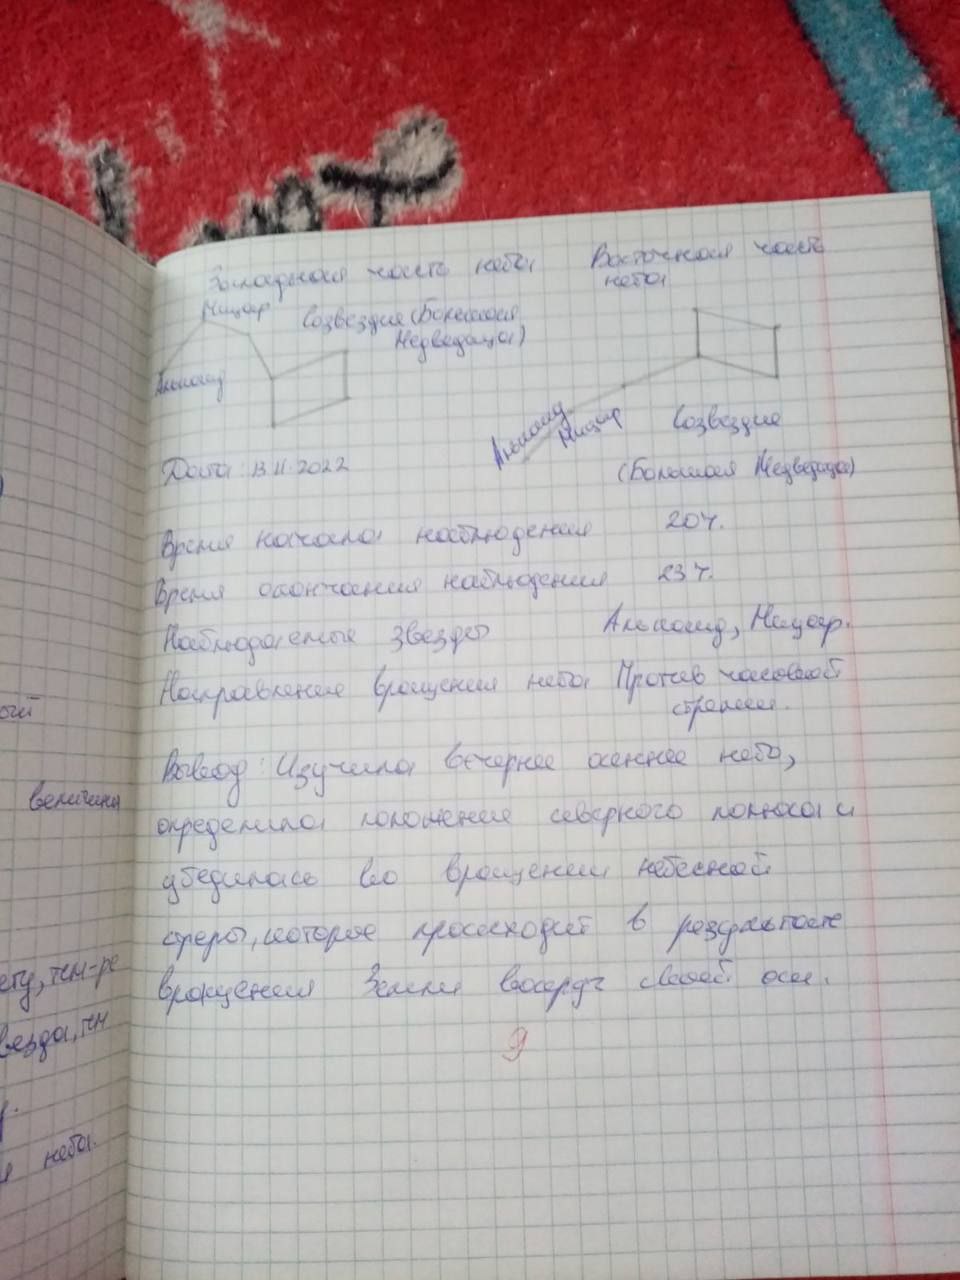 Западная часть неба
Восточная часть
неба
Мицар
Созвездие (Большая
Медведица)
Алькаид
Алькаид
Мицар
Созвездие
(Большая Медведица)
Дата: 13.11.2022
Время начала наблюдения 20ч.
Время окончания наблюдения 23ч.
Наблюдаемые звезды Алькаид, Мицар.
Направление вращения неба Против часовой
стрелки.
Вывод: Изучила вечернее осеннее небо,
определила положение северного полюса и
убедилась во вращении небесной
сферы, которое происходит в результате
вращения Земли вокруг своей оси.
9
величины
ету, тем-ре
везда, тем
неба.